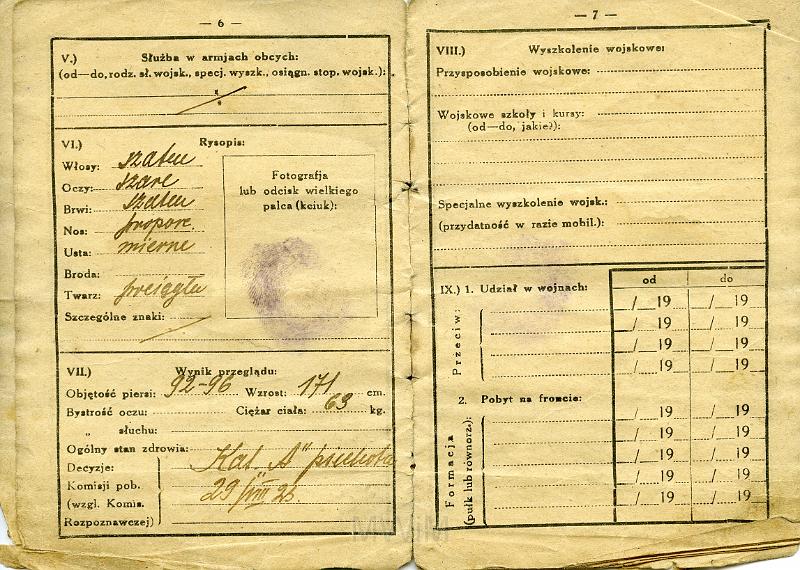 — 6 —
V.) Służba w armjach obcych:
(od—do, rodz. sł. wojsk., specj. wyszk., osiągn. stop. wojsk.):
VI.) Rysopis:
Włosy: szaten
Oczy: szare
Brwi: szaten
Nos: proporc.
Usta: mierne
Broda:
Twarz: pociągła
Szczególne znaki:
Fotografja
lub odcisk wielkiego
palca (kciuk):
VII.) Wynik przeglądu:
Objętość piersi: 92-96 Wzrost: 171 cm.
Bystrość oczu: Ciężar ciała: 63 kg.
„ słuchu:
Ogólny stan zdrowia:
Decyzje: Kat. „A" piechota
Komisji pob. 29/VIII 25.
(wzgl. Komis.
Rozpoznawczej)
— 7 —
VIII.) Wyszkolenie wojskowe:
Przysposobienie wojskowe:
Wojskowe szkoły i kursy:
(od—do, jakie?):
Specjalne wyszkolenie wojsk.:
(przydatność w razie mobil.):
od do
IX.) 1. Udział w wojnach:
Przeciw:
/ 19 / 19
/ 19 / 19
/ 19 / 19
/ 19 / 19
2. Pobyt na froncie:
Formacja
(pułk lub równorz.):
/ 19 / 19
/ 19 / 19
/ 19 / 19
/ 19 / 19
/ 19 / 19